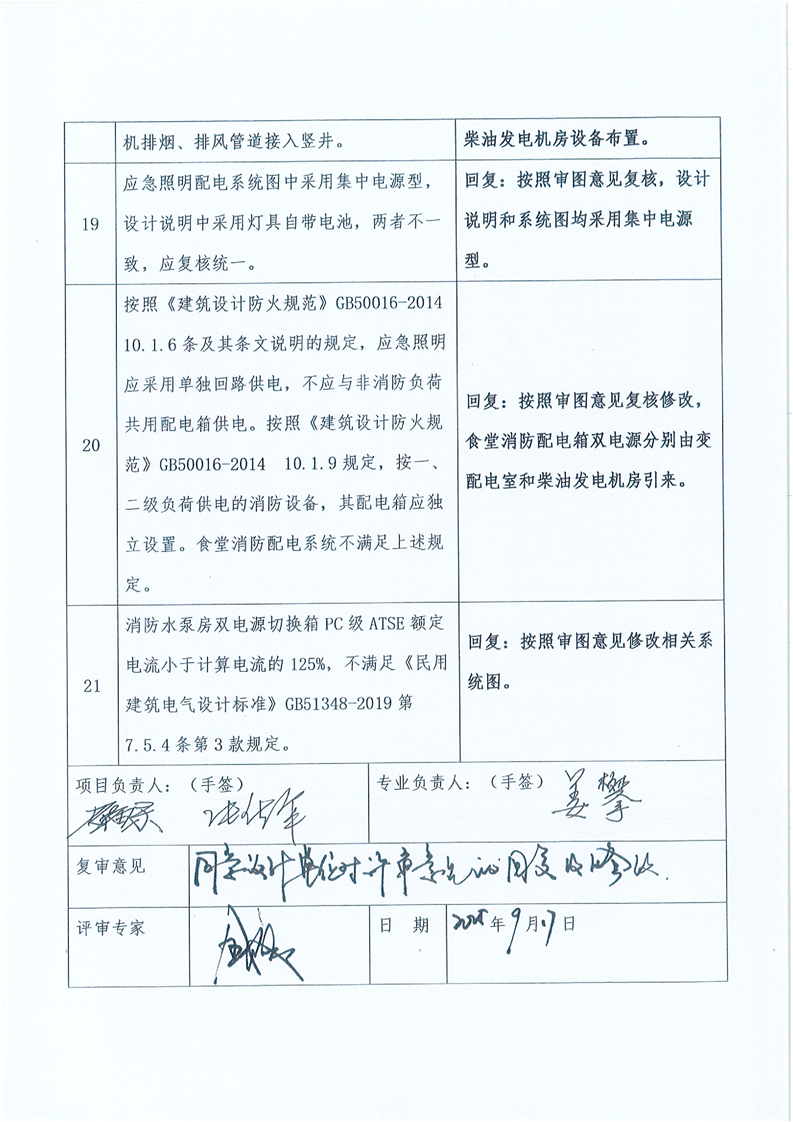 机排烟、排风管道接入竖井。
柴油发电机房设备布置。
19
应急照明配电系统图中采用集中电源型，
设计说明中采用灯具自带电池，两者不一
致，应复核统一。
回复：按照审图意见复核，设计
说明和系统图均采用集中电源
型。
20
按照《建筑设计防火规范》GB50016-2014
10.1.6条及其条文说明的规定，应急照明
应采用单独回路供电，不应与非消防负荷
共用配电箱供电。按照《建筑设计防火规
范》GB50016-2014 10.1.9规定，按一、
二级负荷供电的消防设备，其配电箱应独
立设置。食堂消防配电系统不满足上述规
定。
回复：按照审图意见复核修改，
食堂消防配电箱双电源分别由变
配电室和柴油发电机房引来。
21
消防水泵房双电源切换箱PC级ATSE额定
电流小于计算电流的125%，不满足《民用
建筑电气设计标准》GB51348-2019第
7.5.4条第3款规定。
回复：按照审图意见修改相关系
统图。
项目负责人：（手签）
专业负责人：（手签）
姜攀
复审意见
同意设计单位对评审意见的回复及修改.
评审专家
日 期
年9月17日